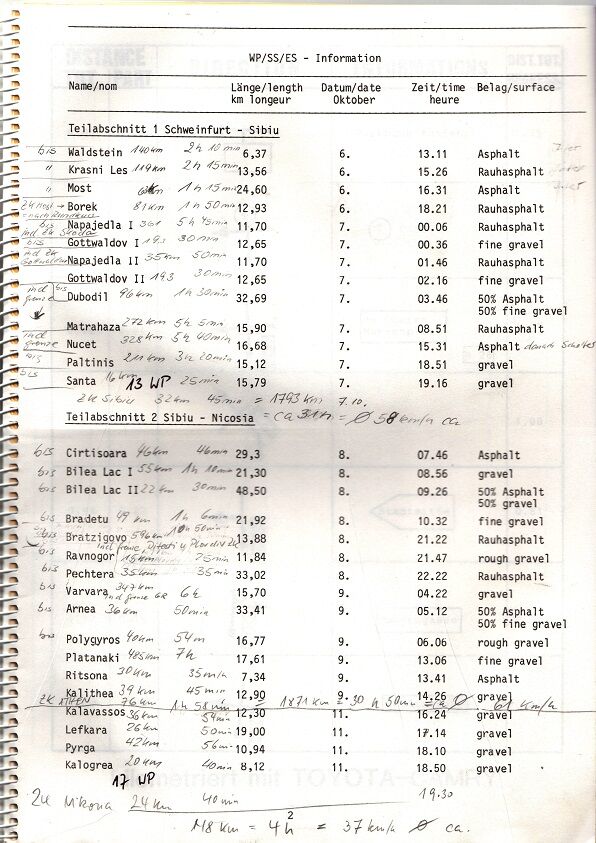 WP/SS/ES - Information
Name/nom Länge/length Datum/date Zeit/time Belag/surface
km longeur Oktober heure
Teilabschnitt 1 Schweinfurt - Sibiu
bis Waldstein 140km 2h 10min 6,37 6. 13.11 Asphalt
" Krasni Les 119km 2h 15min 13,56 6. 15.26 Rauhasphalt
" Most 1h 15min 24,60 6. 16.31 Asphalt
Borek 81km 1h 50min 12,93 6. 18.21 Rauhasphalt
bis Napajedla I 361 5h 45min 11,70 7. 00.06 Rauhasphalt
bis Gottwaldov I 193 30min 12,65 7. 00.36 fine gravel
Napajedla II 35km 50min 11,70 7. 01.46 Rauhasphalt
Gottwaldov II 193 30min 12,65 7. 02.16 fine gravel
bis Dubodil 96km 1h 30min 32,69 7. 03.46 50% Asphalt
50% fine gravel
Matrahaza 272km 5h 5min 15,90 7. 08.51 Rauhasphalt
incl grenze Nucet 328km 5h 40min 16,68 7. 15.31 Asphalt
bis Paltinis 211km 3h 20min 15,12 7. 18.51 gravel
bis Santa 16km 13 WP 25min 15,79 7. 19.16 gravel
ZK Sibiu 32km 45min = 1793km 7.10.
Teilabschnitt 2 Sibiu - Nicosia = ca 31h = Ø 58km/h ca
bis Cirtisoara 46km 46min 29,3 8. 07.46 Asphalt
bis Bilea Lac I 55km 1h 10min 21,30 8. 08.56 gravel
bis Bilea Lac II 22km 30min 48,50 8. 09.26 50% Asphalt
50% gravel
bis Bradetu 49km 1h 6min 21,92 8. 10.32 fine gravel
bis Bratzigovo 596km 10h 50min 13,88 8. 21.22 Rauhasphalt
bis Ravnogor 15km 25min 11,84 8. 21.47 rough gravel
bis Pechtera 35km 35min 33,02 8. 22.22 Rauhasphalt
bis Varvara 347km 6h 15,70 9. 04.22 gravel
bis Arnea 36km 50min 33,41 9. 05.12 50% Asphalt
50% fine gravel
bis Polygyros 40km 54m 16,77 9. 06.06 rough gravel
Platanaki 485km 7h 17,61 9. 13.06 fine gravel
Ritsona 30km 35min 7,34 9. 13.41 Asphalt
Kalithea 39km 45min 12,90 9. 14.26 gravel
ZK ATHEN 76km 1h 58min = 1871km = 30h 50min = ca Ø 61 km/h
Kalavassos 36km 54min 12,30 11. 16.24 gravel
Lefkara 26km 50min 19,00 11. 17.14 gravel
Pyrga 42km 56min 10,94 11. 18.10 gravel
Kalogrea 20km 40min 8,12 11. 18.50 gravel
17 WP 19.30
ZK Nikosia 24km 40min
2
148km = 4h = 37km/h Ø ca.